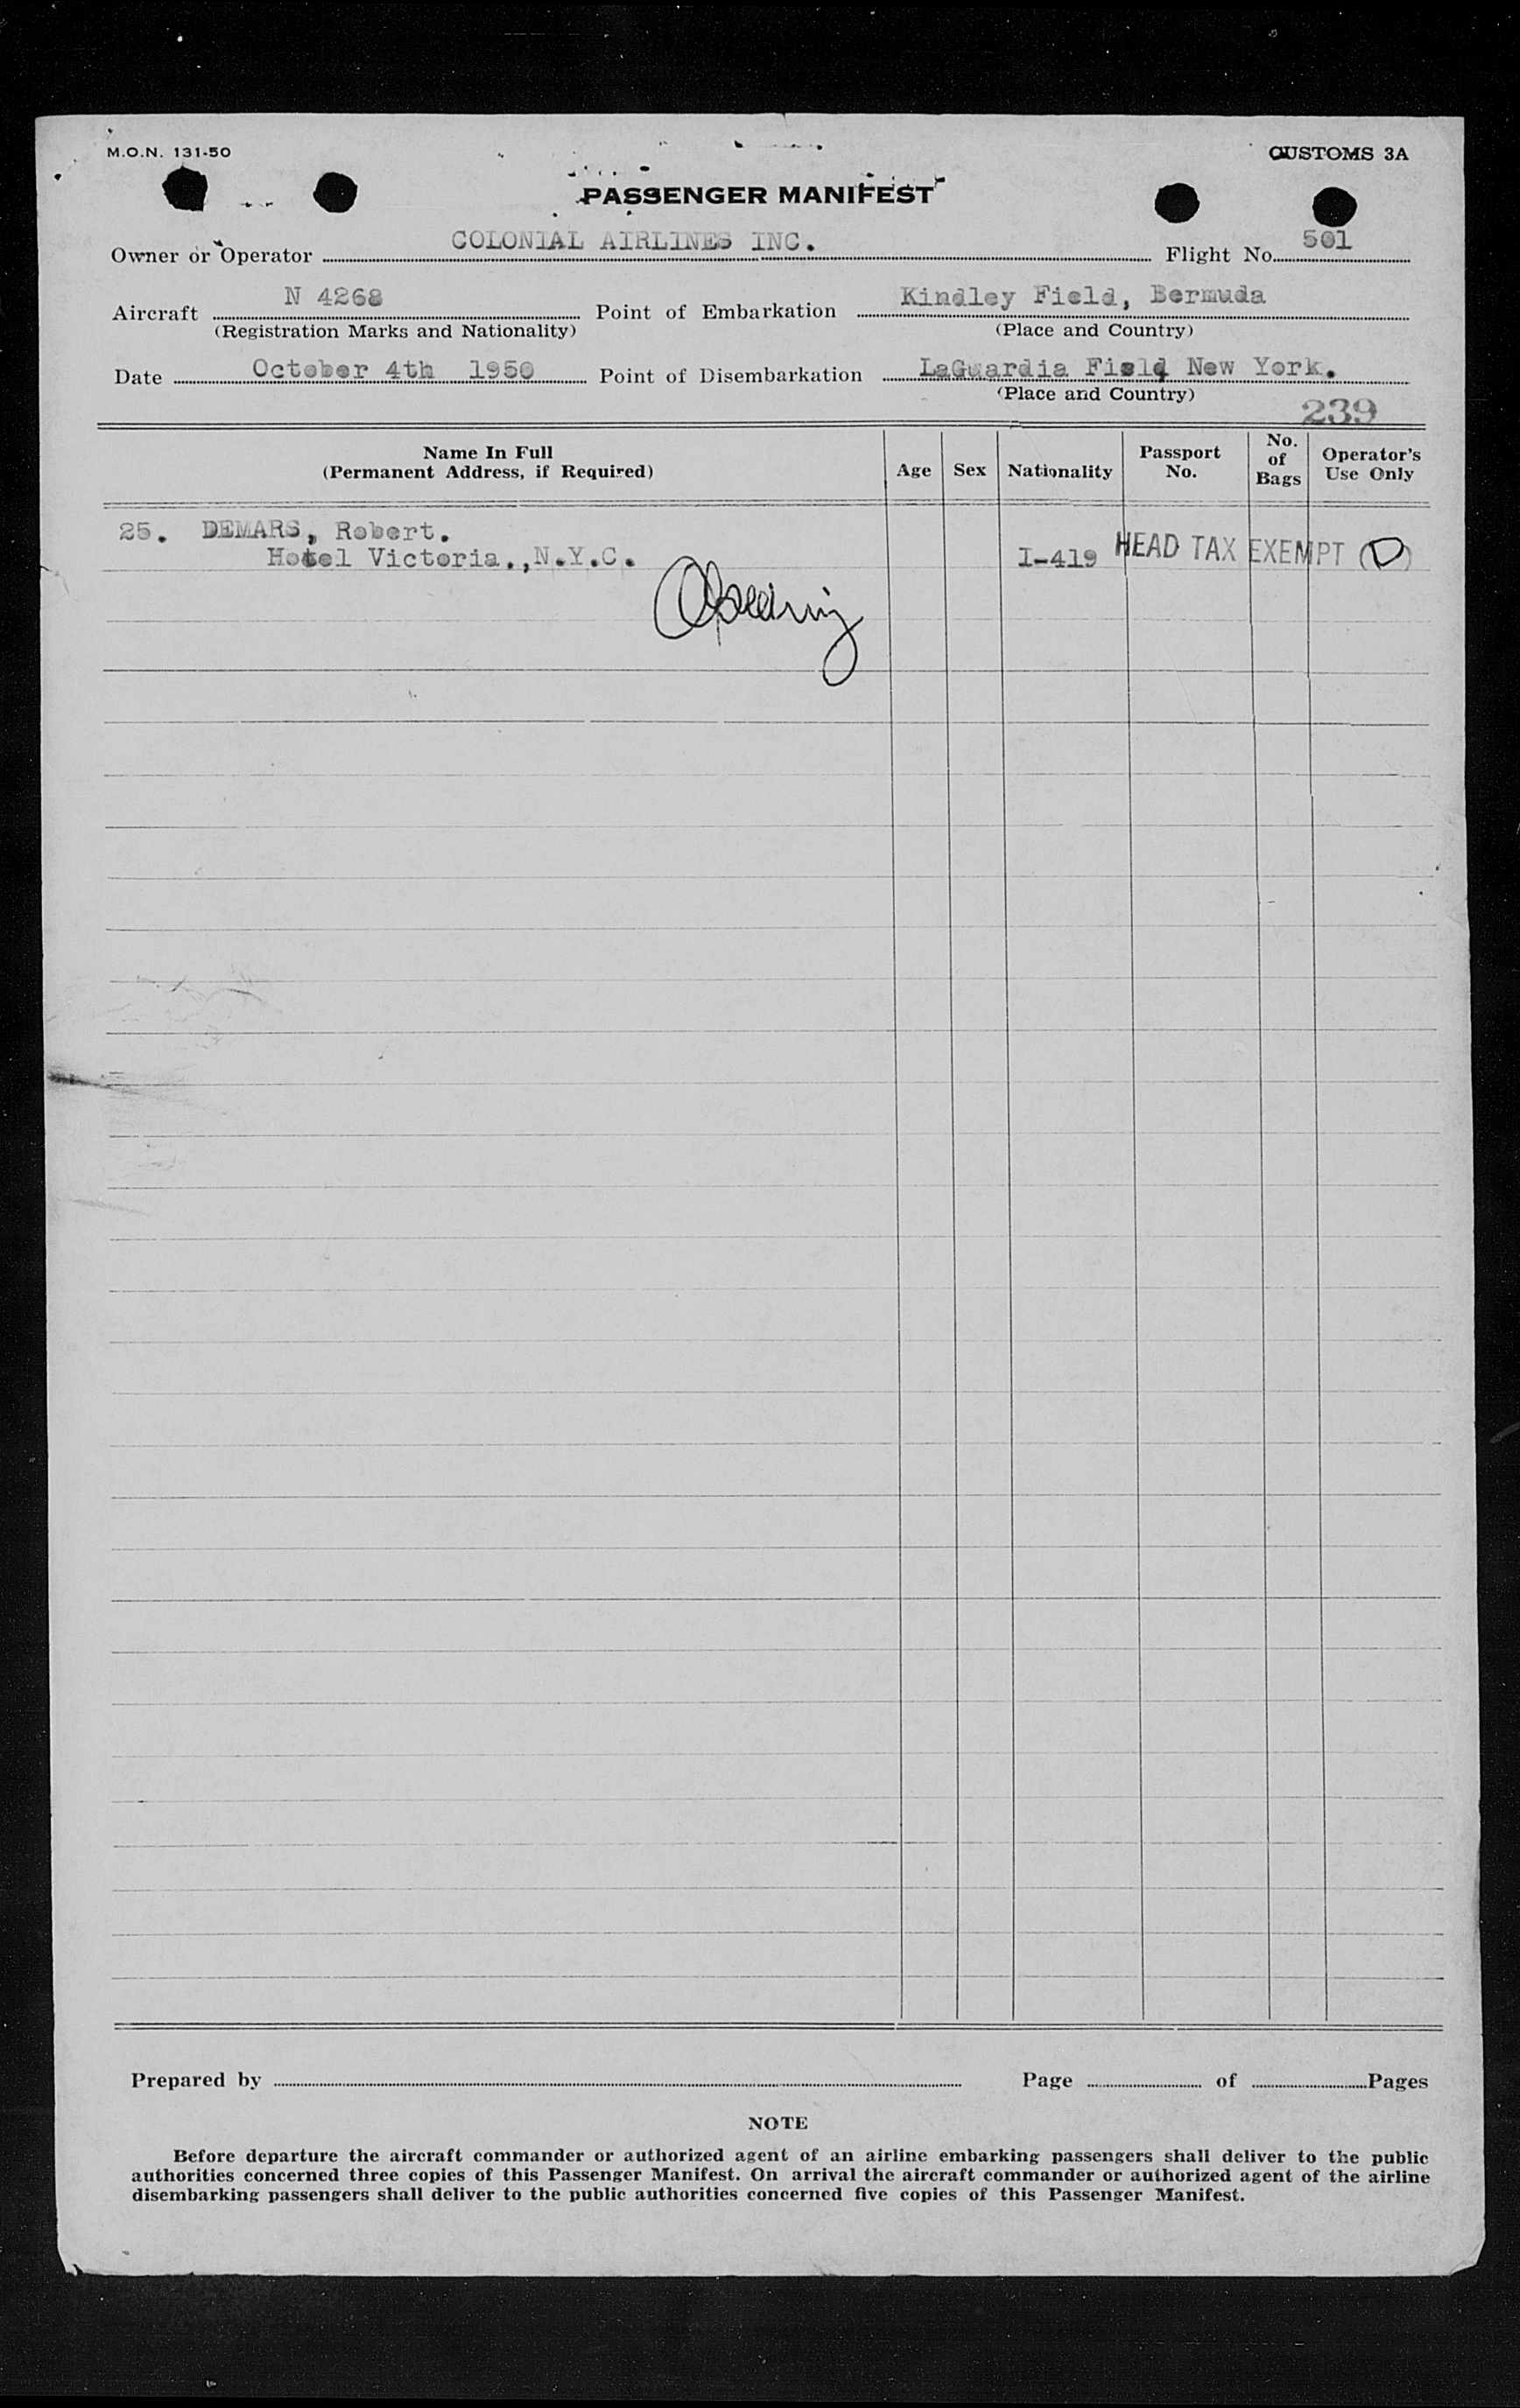 M.O.N. 131-50
CUSTOMS 3A
PASSENGER MANIFEST
Owner or Operator COLONIAL AIRLINES INC. Flight No. 501
Aircraft N 4268 Point of Embarkation Kindley Field, Bermuda
(Registration Marks and Nationality) (Place and Country)
Date October 4th 1950 Point of Disembarkation LaGuardia Field New York.
(Place and Country)
239
Name In Full
(Permanent Address, if Required)
Age
Sex
Nationality
Passport
No.
No.
of
Bags
Operator's
Use Only
25. DEMARS, Robert.
Hotel Victoria.,N.Y.C. I-419 HEAD TAX EXEMPT (D)
Prepared by Page of Pages
NOTE
Before departure the aircraft commander or authorized agent of an airline embarking passengers shall deliver to the public
authorities concerned three copies of this Passenger Manifest. On arrival the aircraft commander or authorized agent of the airline
disembarking passengers shall deliver to the public authorities concerned five copies of this Passenger Manifest.